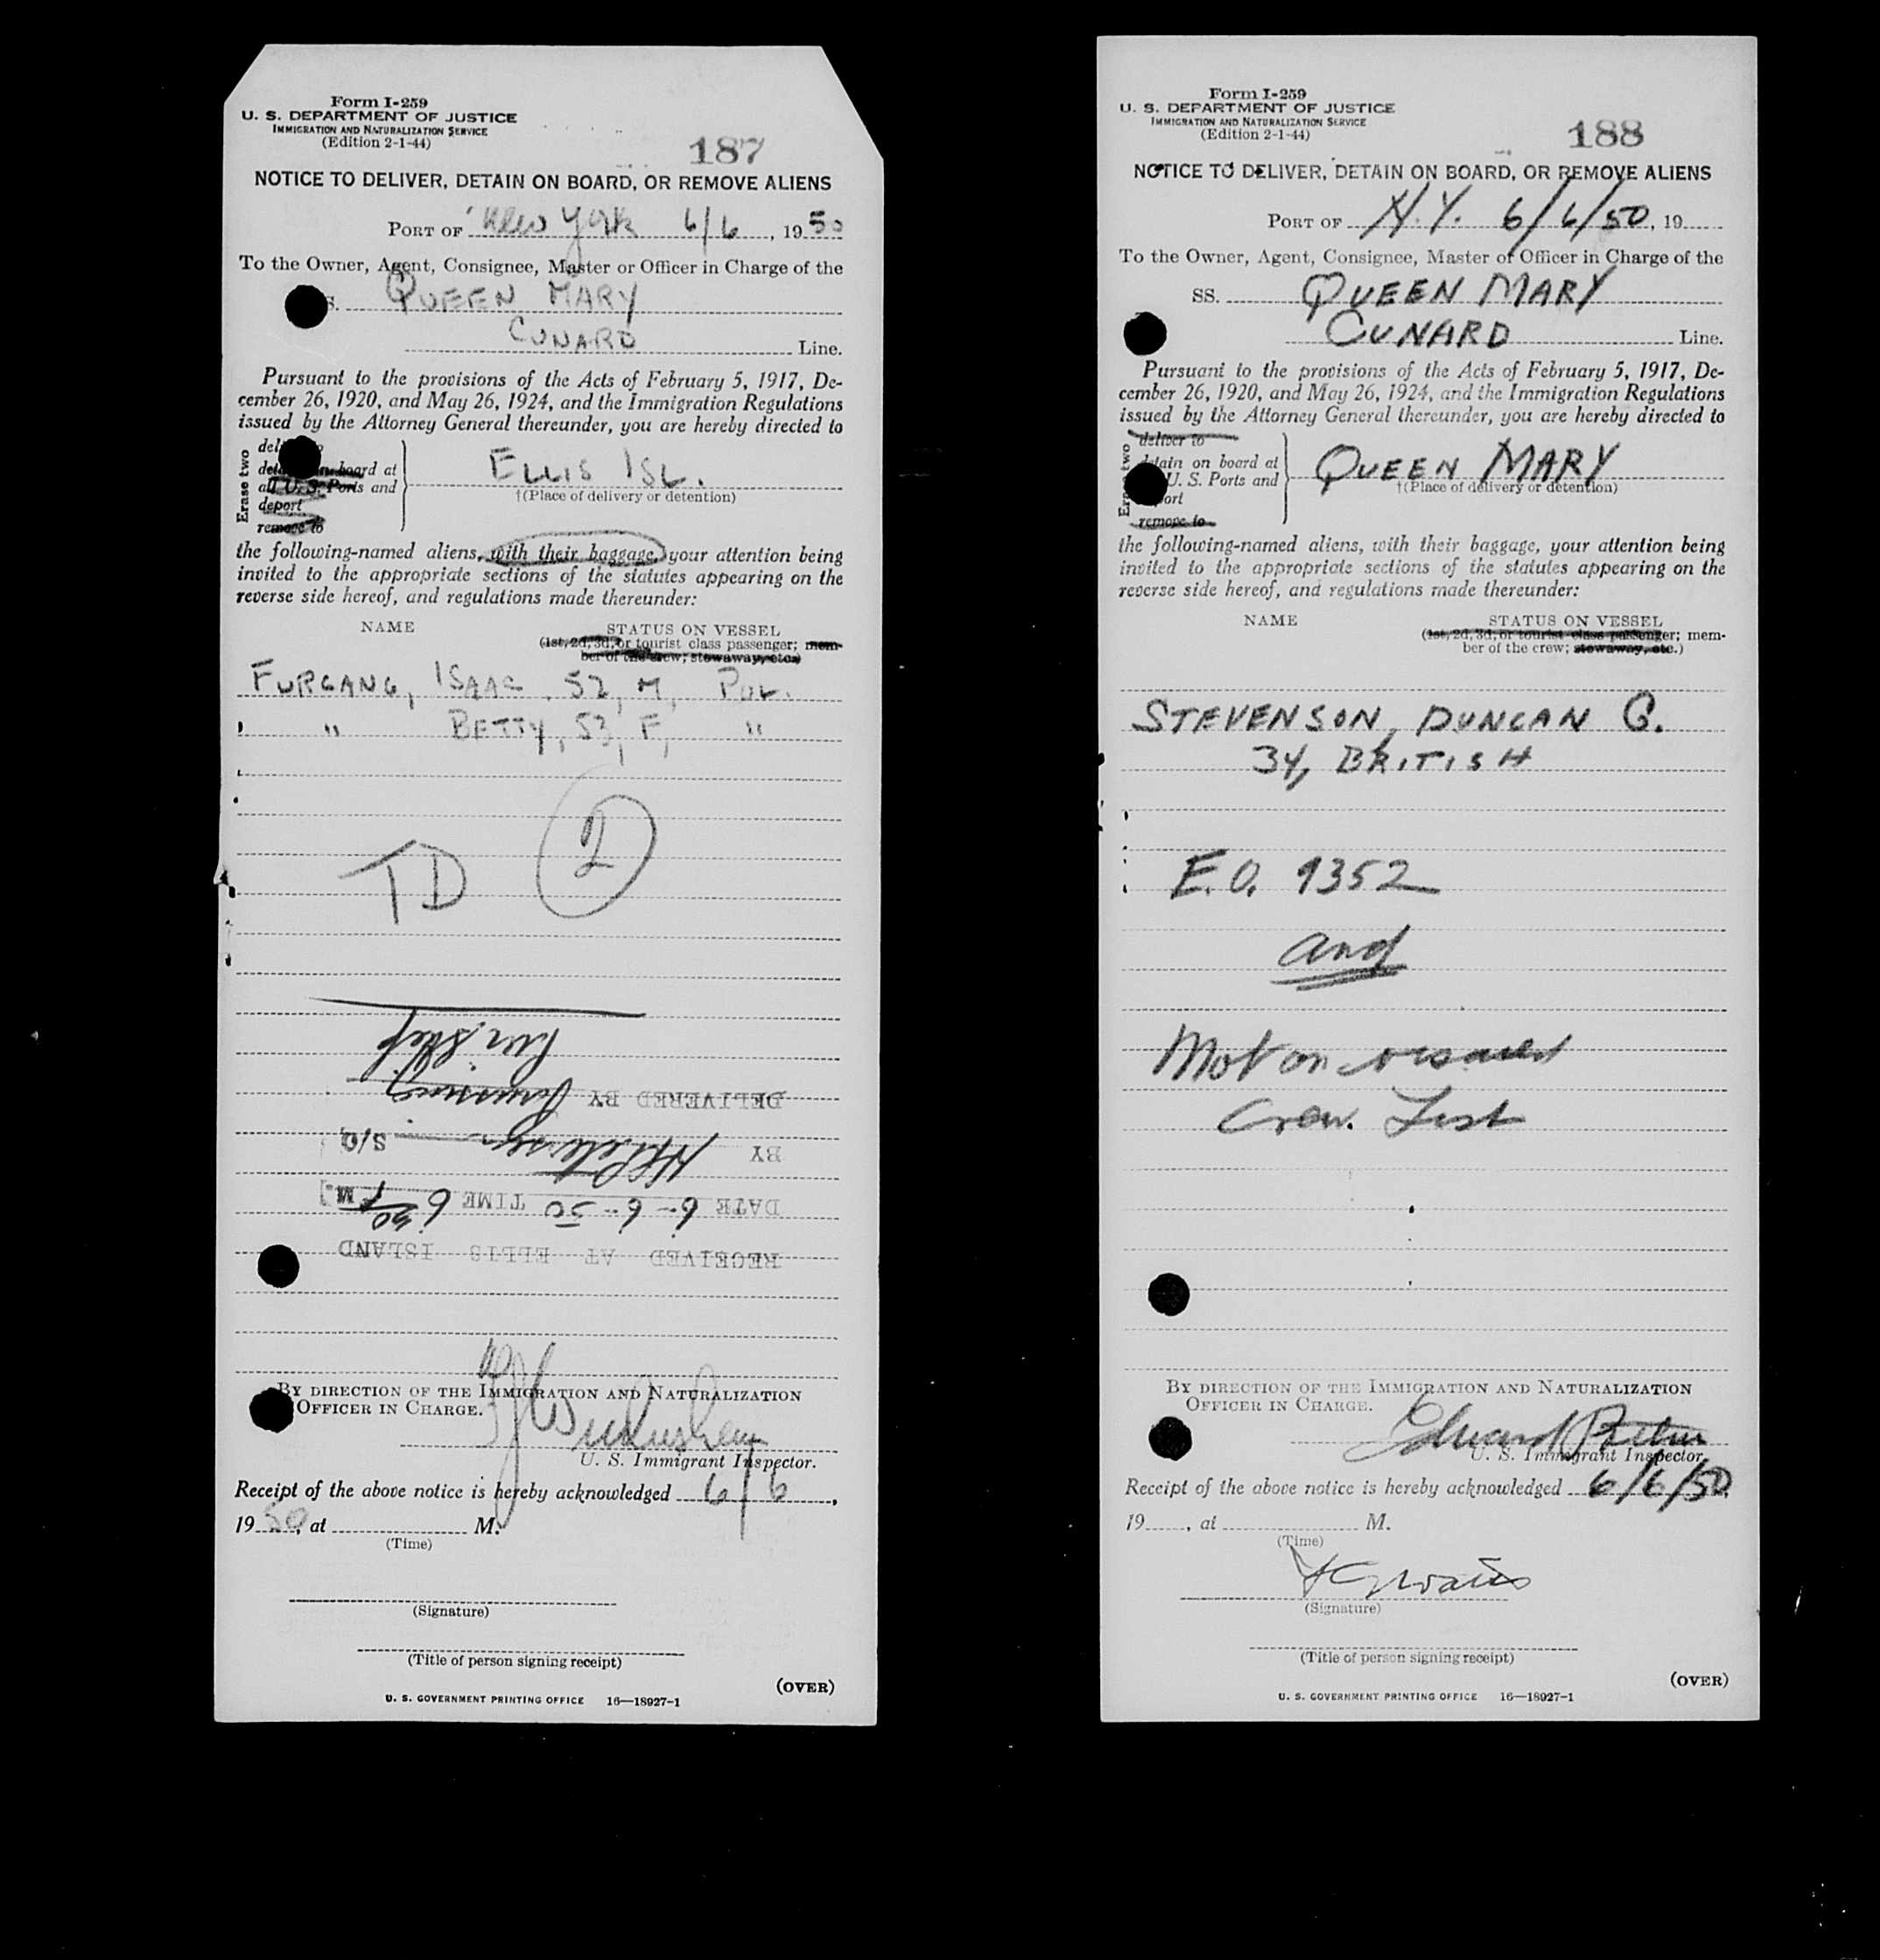 Form I-259
U. S. DEPARTMENT OF JUSTICE
IMMIGRATION AND NATURALIZATION SERVICE
(Edition 2-1-44)
187
NOTICE TO DELIVER, DETAIN ON BOARD, OR REMOVE ALIENS
PORT OF New York 6/6, 1950
To the Owner, Agent, Consignee, Master or Officer in Charge of the
S. QUEEN MARY
CUNARD Line.
Pursuant to the provisions of the Acts of February 5, 1917, De-
cember 26, 1920, and May 26, 1924, and the Immigration Regulations
issued by the Attorney General thereunder, you are hereby directed to
Erase two
on board at
all U. S. Ports and
deport
remove to
ELLIS ISL.
†(Place of delivery or detention)
the following-named aliens, with their baggage, your attention being
invited to the appropriate sections of the statutes appearing on the
reverse side hereof, and regulations made thereunder:
NAME STATUS ON VESSEL
(1st, 2d, 3d, or tourist class passenger; mem-
ber of the crew; stowaway, etc.)
FURGANG, ISAAC, 52, M, POL.
" BETTY, 53, F, "
TD 2
DELIVERED BY
BY S/O
DATE 6-6-50 TIME 6 30 P M.
RECEIVED AT ELLIS ISLAND
BY DIRECTION OF THE IMMIGRATION AND NATURALIZATION
OFFICER IN CHARGE.
U. S. Immigrant Inspector.
Receipt of the above notice is hereby acknowledged 6/6,
1950, at M.
(Time)
(Signature)
(Title of person signing receipt)
(OVER)
U. S. GOVERNMENT PRINTING OFFICE 16—18927-1
Form I-259
U. S. DEPARTMENT OF JUSTICE
IMMIGRATION AND NATURALIZATION SERVICE
(Edition 2-1-44)
188
NOTICE TO DELIVER, DETAIN ON BOARD, OR REMOVE ALIENS
PORT OF N.Y. 6/6/50, 19
To the Owner, Agent, Consignee, Master or Officer in Charge of the
SS. QUEEN MARY
CUNARD Line.
Pursuant to the provisions of the Acts of February 5, 1917, De-
cember 26, 1920, and May 26, 1924, and the Immigration Regulations
issued by the Attorney General thereunder, you are hereby directed to
deliver to
on board at
U. S. Ports and
remove to
QUEEN MARY
†(Place of delivery or detention)
the following-named aliens, with their baggage, your attention being
invited to the appropriate sections of the statutes appearing on the
reverse side hereof, and regulations made thereunder:
NAME STATUS ON VESSEL
(1st, 2d, 3d, or tourist class passenger; mem-
ber of the crew; stowaway, etc.)
STEVENSON, DUNCAN G.
34, BRITISH
E.O. 9352
and
Not on visaed
Crew List
BY DIRECTION OF THE IMMIGRATION AND NATURALIZATION
OFFICER IN CHARGE.
Edward
U. S. Immigrant Inspector.
Receipt of the above notice is hereby acknowledged 6/6/50,
19, at M.
(Time)
(Signature)
(Title of person signing receipt)
(OVER)
U. S. GOVERNMENT PRINTING OFFICE 16—18927-1